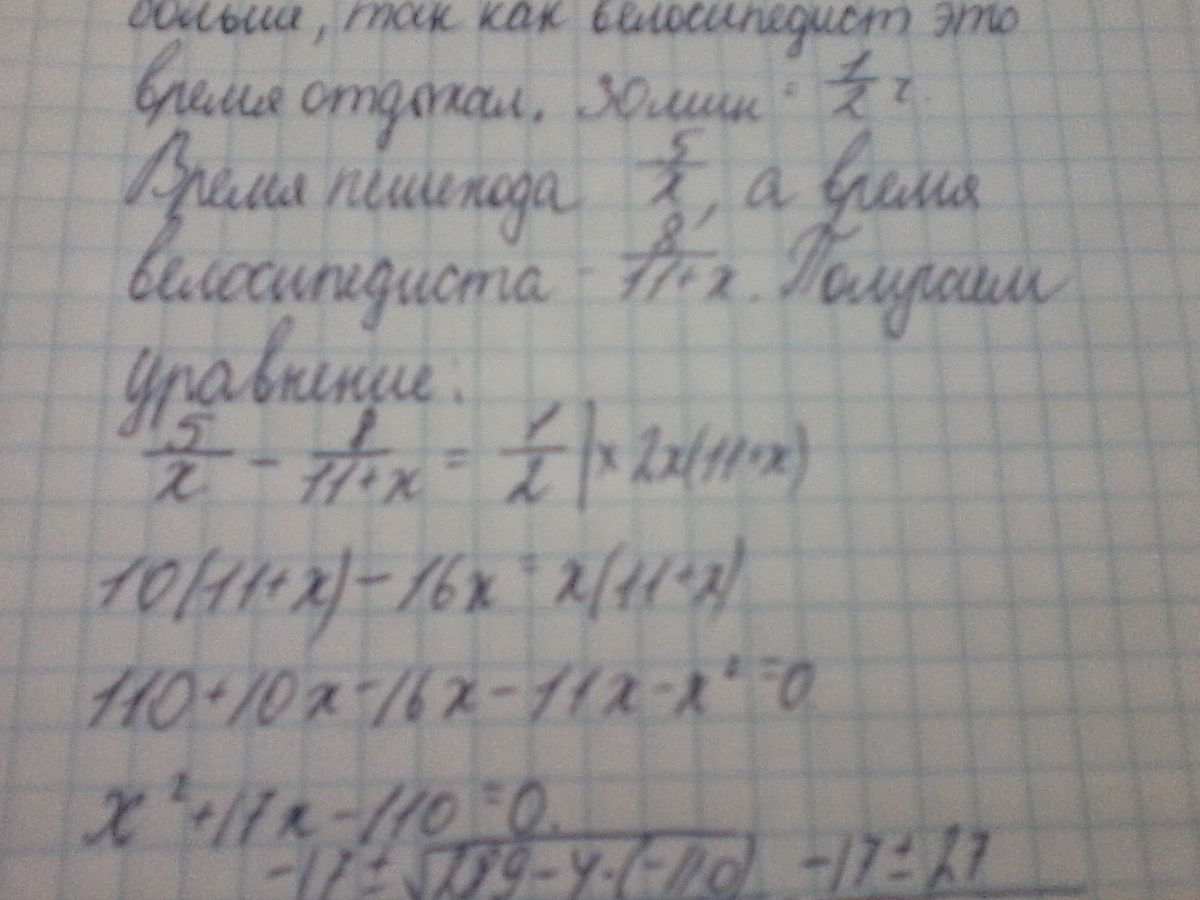 больше, так как велосипедист это
время отдыхал. 30 мин = 1/2 ч.
Время пешехода 5/x, а время
велосипедиста - 8/11+x. Получаем
уравнение:
5/x - 8/11+x = 1/2 | × 2x(11+x)
10(11+x) - 16x = x(11+x)
110+10x-16x-11x-x²=0
x²+17x-110=0
-17±√289-4·(-110) -17±27